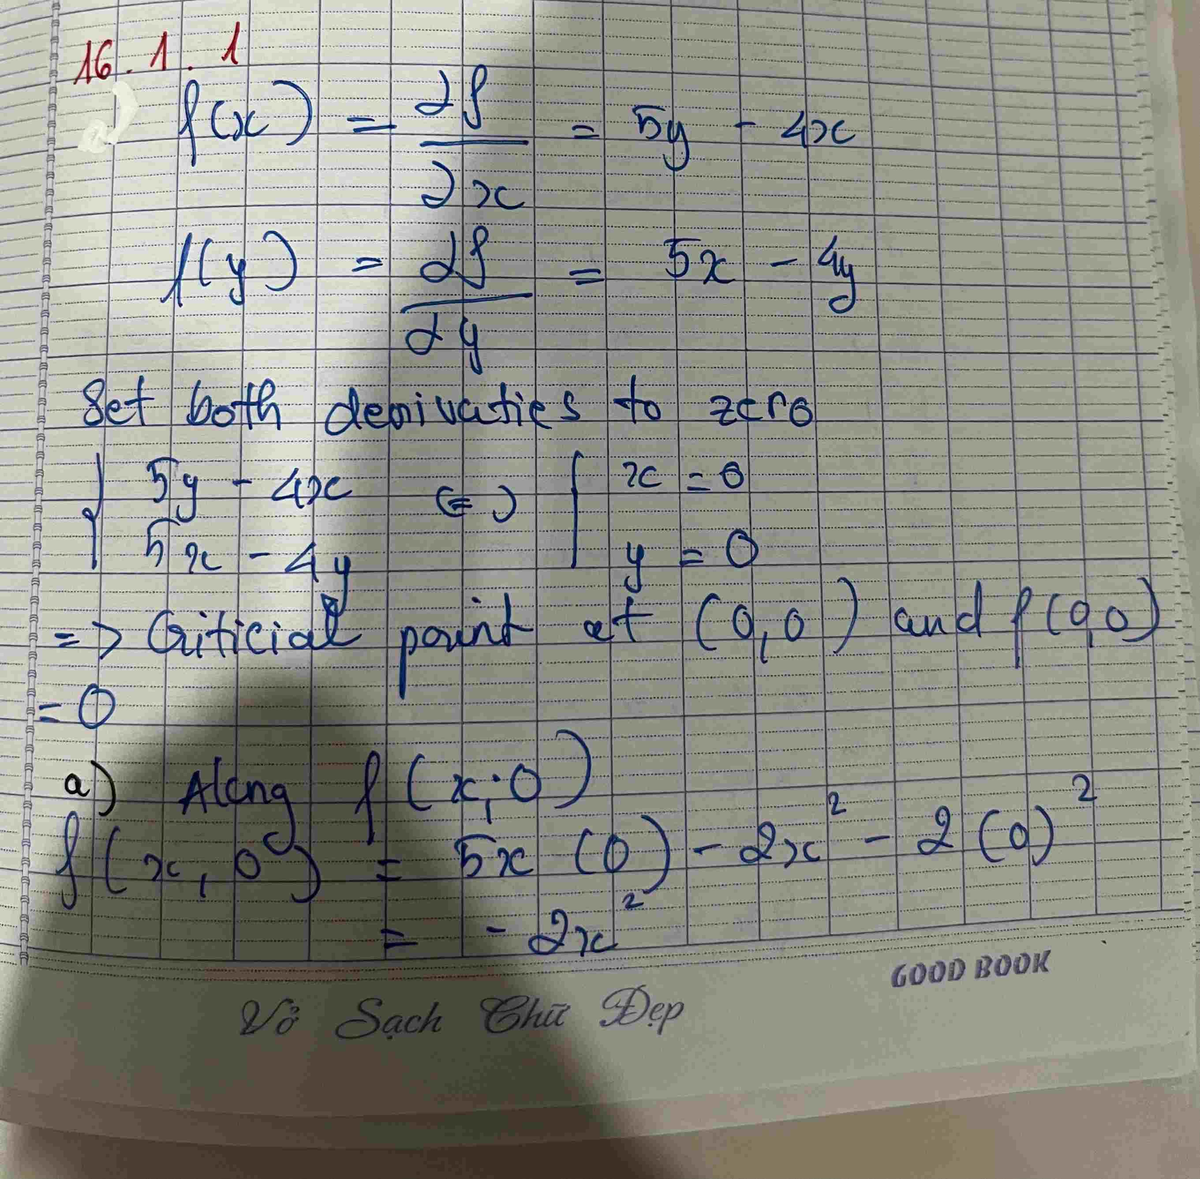 16.1.1
a) f(x) = ∂f/∂x = 5y - 4x
f(y) = ∂f/∂y = 5x - 4y
Set both derivaties to zero
{ 5y - 4x <=> { x = 0
5x - 4y y = 0
=> Criticial point at (0,0) and f(0,0)
= 0
a) Along f(x;0)
f(x,0) = 5x(0) - 2x² - 2(0)²
= -2x²
GOOD BOOK
Vở Sạch Chữ Đẹp